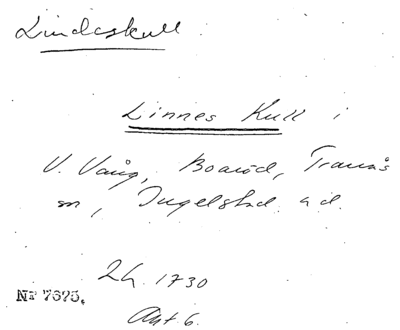 Lindeskull
Linnes Kull i
V. Vång, Boaröd, Tranås
sn, Ingelstad hd.
Lh. 1730
Akt 6.
Nr 7675.